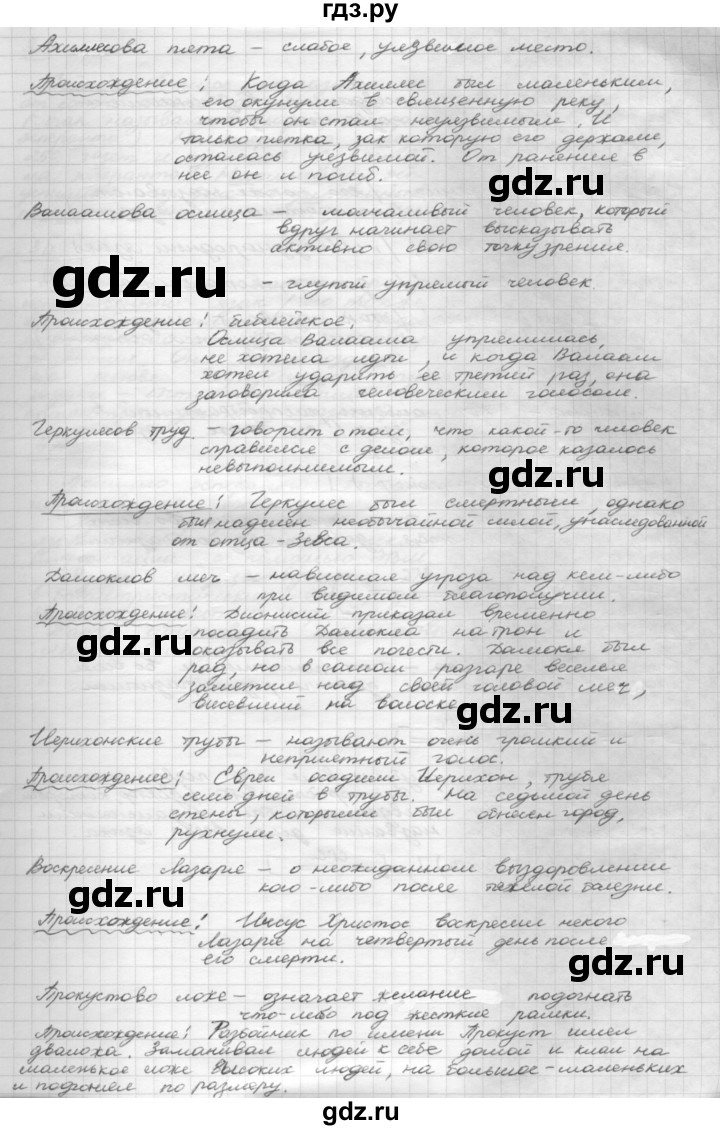 гдз.ру
Ахиллесова пята – слабое, уязвимое место.
Происхождение: Когда Ахиллес был маленьким,
его окунули в священную реку,
чтобы он стал неуязвимым. И
только пятка, зак которую его держали,
осталась уязвимой. От ранения в
нее он и погиб.
gdz.ru
Валаамова ослица – молчаливый человек, который
вдруг начинает высказывать
активно свою точку зрения.
gdz.ru
– глупый упрямый человек.
Происхождение: Библейское.
Ослица Валаама упрямилась,
не хотела идти, и когда Валаам
хотел ударить ее третий раз, она
gdz.ru
заговорила человеческим голосом.
Геркулесов труд – говорит о том, что какой-то человек
справился с делом, которое казалось
невыполнимым.
gdz.ru
Происхождение: Геркулес был смертным, однако
был наделен необычайной силой, унаследованной
от отца – Зевса.
Дамоклов меч – нависшая угроза над кем-либо
при видимом благополучии.
Происхождение: Дионисий приказал временно
посадить Дамокла на трон и
gdz.ru
оказывать все почести. Дамокл был
рад, но в самом разгаре веселья
заметил над своей головой меч,
висевший на волоске.
gdz.ru
Иерихонские трубы – называют очень громкий и
неприятный голос.
Происхождение: Евреи осадили Иерихон, трубя
gdz.ru
семь дней в трубы. На седьмой день
стены, которыми был обнесен город,
рухнули.
Воскресение Лазаря – о неожиданном выздоровлении
кого-либо после тяжелой болезни.
gdz.ru
gdz.ru
Происхождение: Иисус Христос воскресил некого
Лазаря на четвертый день после
его смерти.
gdz.ru
Прокустово ложе – означает желание подогнать
что-либо под жесткие рамки.
Происхождение: Разбойник по имени Прокуст имел
два ложа. Заманивал людей к себе домой и клал на
маленькое ложе высоких людей, на большое – маленьких
и подгонял по размеру.
gdz.ru